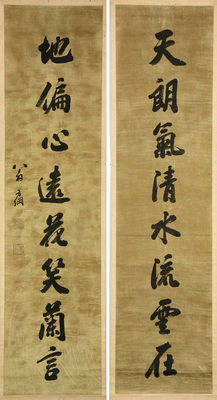 天朗氣清水流雲在
地偏心遠花笑蘭言
翁方綱